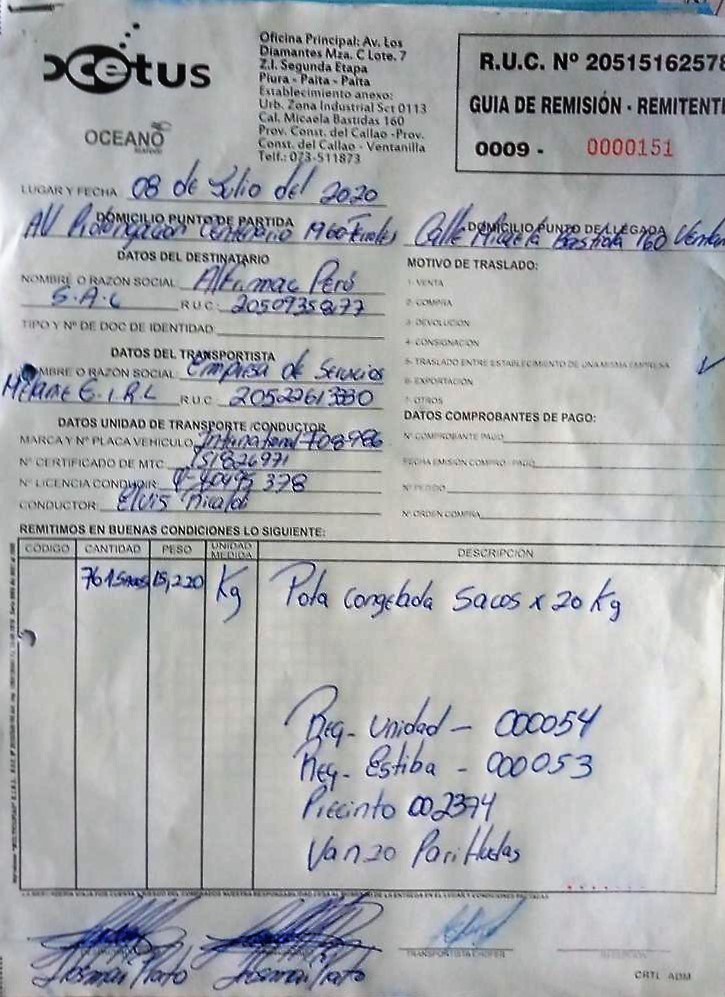 cetus
OCEANO
SEAFOOD
Oficina Principal: Av. Los
Diamantes Mza. C Lote. 7
Z.I. Segunda Etapa
Piura - Paita - Paita
Establecimiento anexo:
Urb. Zona Industrial Sct 0113
Cal. Micaela Bastidas 160
Prov. Const. del Callao -Prov.
Const. del Callao - Ventanilla
Telf.: 073-511873
R.U.C. Nº 20515162578
GUIA DE REMISIÓN - REMITENT
0009 - 0000151
LUGAR Y FECHA 08 de Julio del 2020
DOMICILIO PUNTO DE PARTIDA
AV Prolongación Centenario 1960
DOMICILIO PUNTO DE LLEGADA
Calle Micaela Bastida 160 Ventan
DATOS DEL DESTINATARIO
NOMBRE O RAZÓN SOCIAL: Altamar Perú
S.A.C R.U.C.: 20509358177
TIPO Y Nº DE DOC DE IDENTIDAD:
MOTIVO DE TRASLADO:
1- VENTA
2- COMPRA
3- DEVOLUCIÓN
4- CONSIGNACION
5- TRASLADO ENTRE ESTABLECIMIENTO DE UNA MISMA EMPRESA
6- EXPORTACIÓN
7- OTROS
DATOS DEL TRANSPORTISTA
OMBRE O RAZÓN SOCIAL: Empresa de Servicios
E.I.R.L R.U.C: 20522613330
DATOS UNIDAD DE TRANSPORTE /CONDUCTOR
MARCA Y Nº PLACA VEHICULO: International
Nº CERTIFICADO DE MTC: 151826971
Nº LICENCIA CONDUCIR: Q-40495378
CONDUCTOR: Elvis
DATOS COMPROBANTES DE PAGO:
Nº COMPROBANTE PAGO
FECHA EMISIÓN COMPRO. PAGO
Nº PEDIDO
Nº ORDEN COMPRA
REMITIMOS EN BUENAS CONDICIONES LO SIGUIENTE:
CÓDIGO CANTIDAD PESO UNIDAD MEDIDA DESCRIPCIÓN
761 Sacos 15,220 Kg Pota congelada Sacos x 20 Kg
Reg- Unidad - 000054
Reg- Estiba - 000053
Precinto 002374
Van 20 Parihuelas
TRANSPORTISTA CHOFER
RECEPCIÓN
CRTL ADM